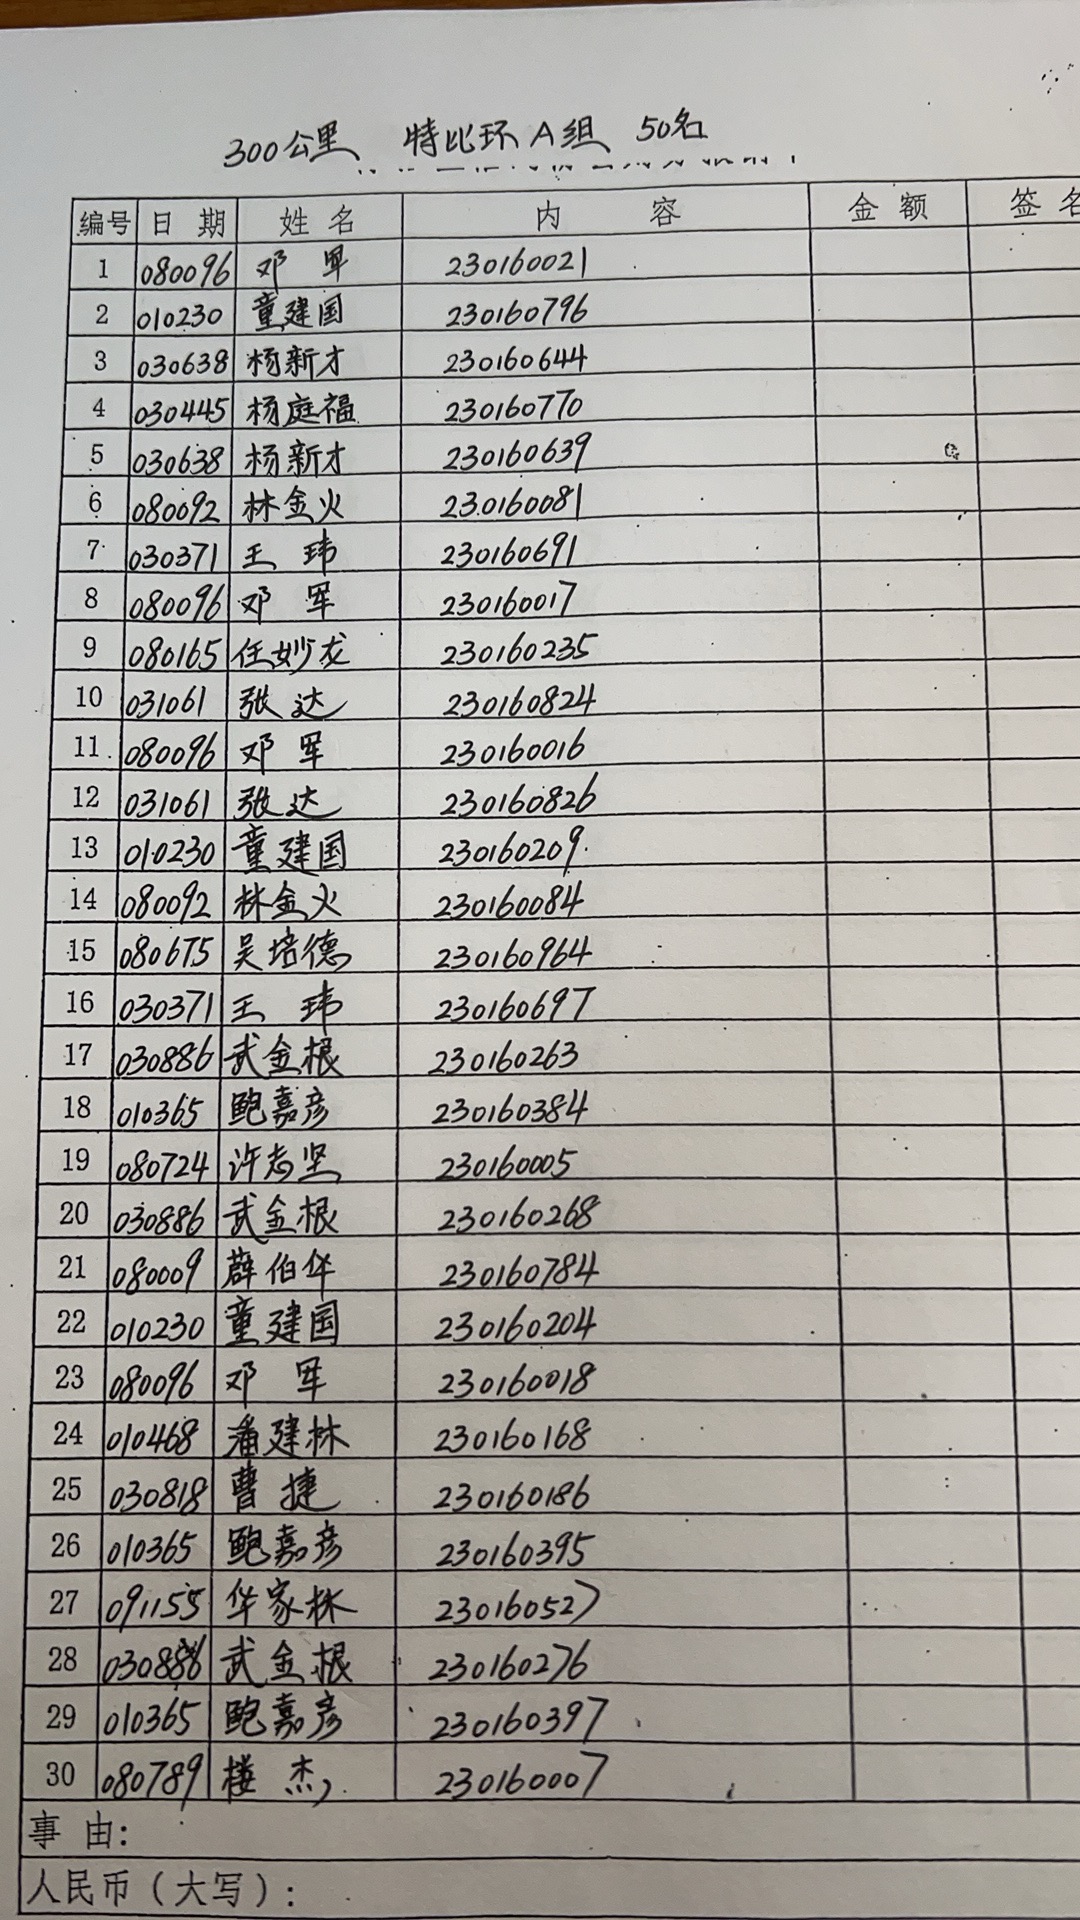 300公里 特比环A组 50名
编号 日期 姓名 内容 金额 签名
1 080096 邓军 230160021
2 010230 童建国 230160796
3 030638 杨新才 230160644
4 030445 杨庭福 230160770
5 030638 杨新才 230160639
6 080092 林金火 230160081
7 030371 王玮 230160691
8 080096 邓军 230160017
9 080165 任妙龙 230160235
10 031061 张达 230160824
11 080096 邓军 230160016
12 031061 张达 230160826
13 010230 童建国 230160209
14 080092 林金火 230160084
15 080675 吴培德 230160964
16 030371 王玮 230160697
17 030886 武金根 230160263
18 010365 鲍嘉彦 230160384
19 080724 许志坚 230160005
20 030886 武金根 230160268
21 080009 薛伯华 230160784
22 010230 童建国 230160204
23 080096 邓军 230160018
24 010468 潘建林 230160168
25 030818 曹捷 230160186
26 010365 鲍嘉彦 230160395
27 091155 华家林 230160527
28 030886 武金根 230160276
29 010365 鲍嘉彦 230160397
30 080789 楼杰 230160007
事由:
人民币(大写):